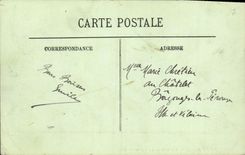 CARTE POSTALE
CORRESPONDANCE
ADRESSE
Bons Baisers
Emilie
Marie Chrétien
au Châtelet
Bazouges-la-Pérouse
Ille et Vilaine